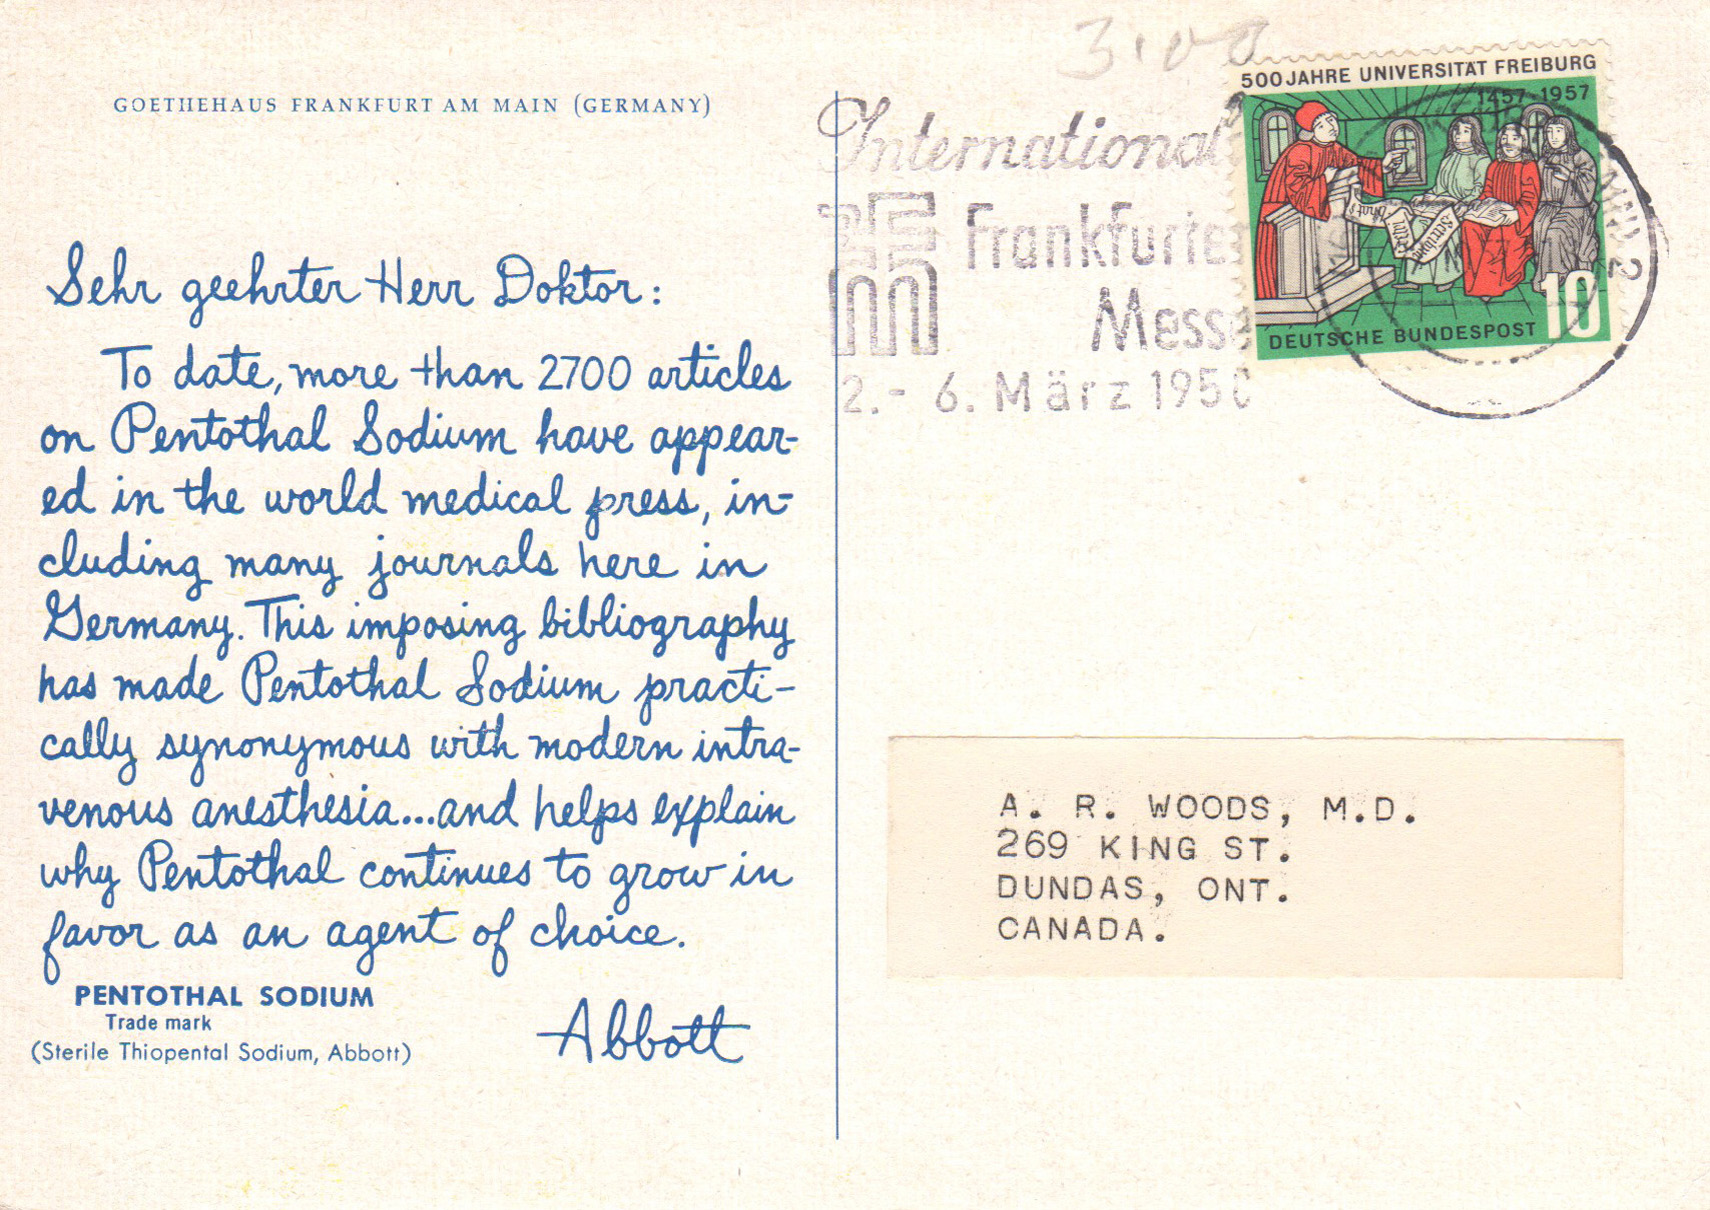 GOETHEHAUS FRANKFURT AM MAIN (GERMANY)
Sehr geehrter Herr Doktor:
To date, more than 2700 articles
on Pentothal Sodium have appear-
ed in the world medical press, in-
cluding many journals here in
Germany. This imposing bibliography
has made Pentothal Sodium practi-
cally synonymous with modern intra-
venous anesthesia...and helps explain
why Pentothal continues to grow in
favor as an agent of choice.
PENTOTHAL SODIUM
Trade mark
(Sterile Thiopental Sodium, Abbott)
Abbott
3.00
International
Frankfurter
Messe
2.- 6. März 195
500 JAHRE UNIVERSITÄT FREIBURG
1457-1957
10
DEUTSCHE BUNDESPOST
A. R. WOODS, M.D.
269 KING ST.
DUNDAS, ONT.
CANADA.